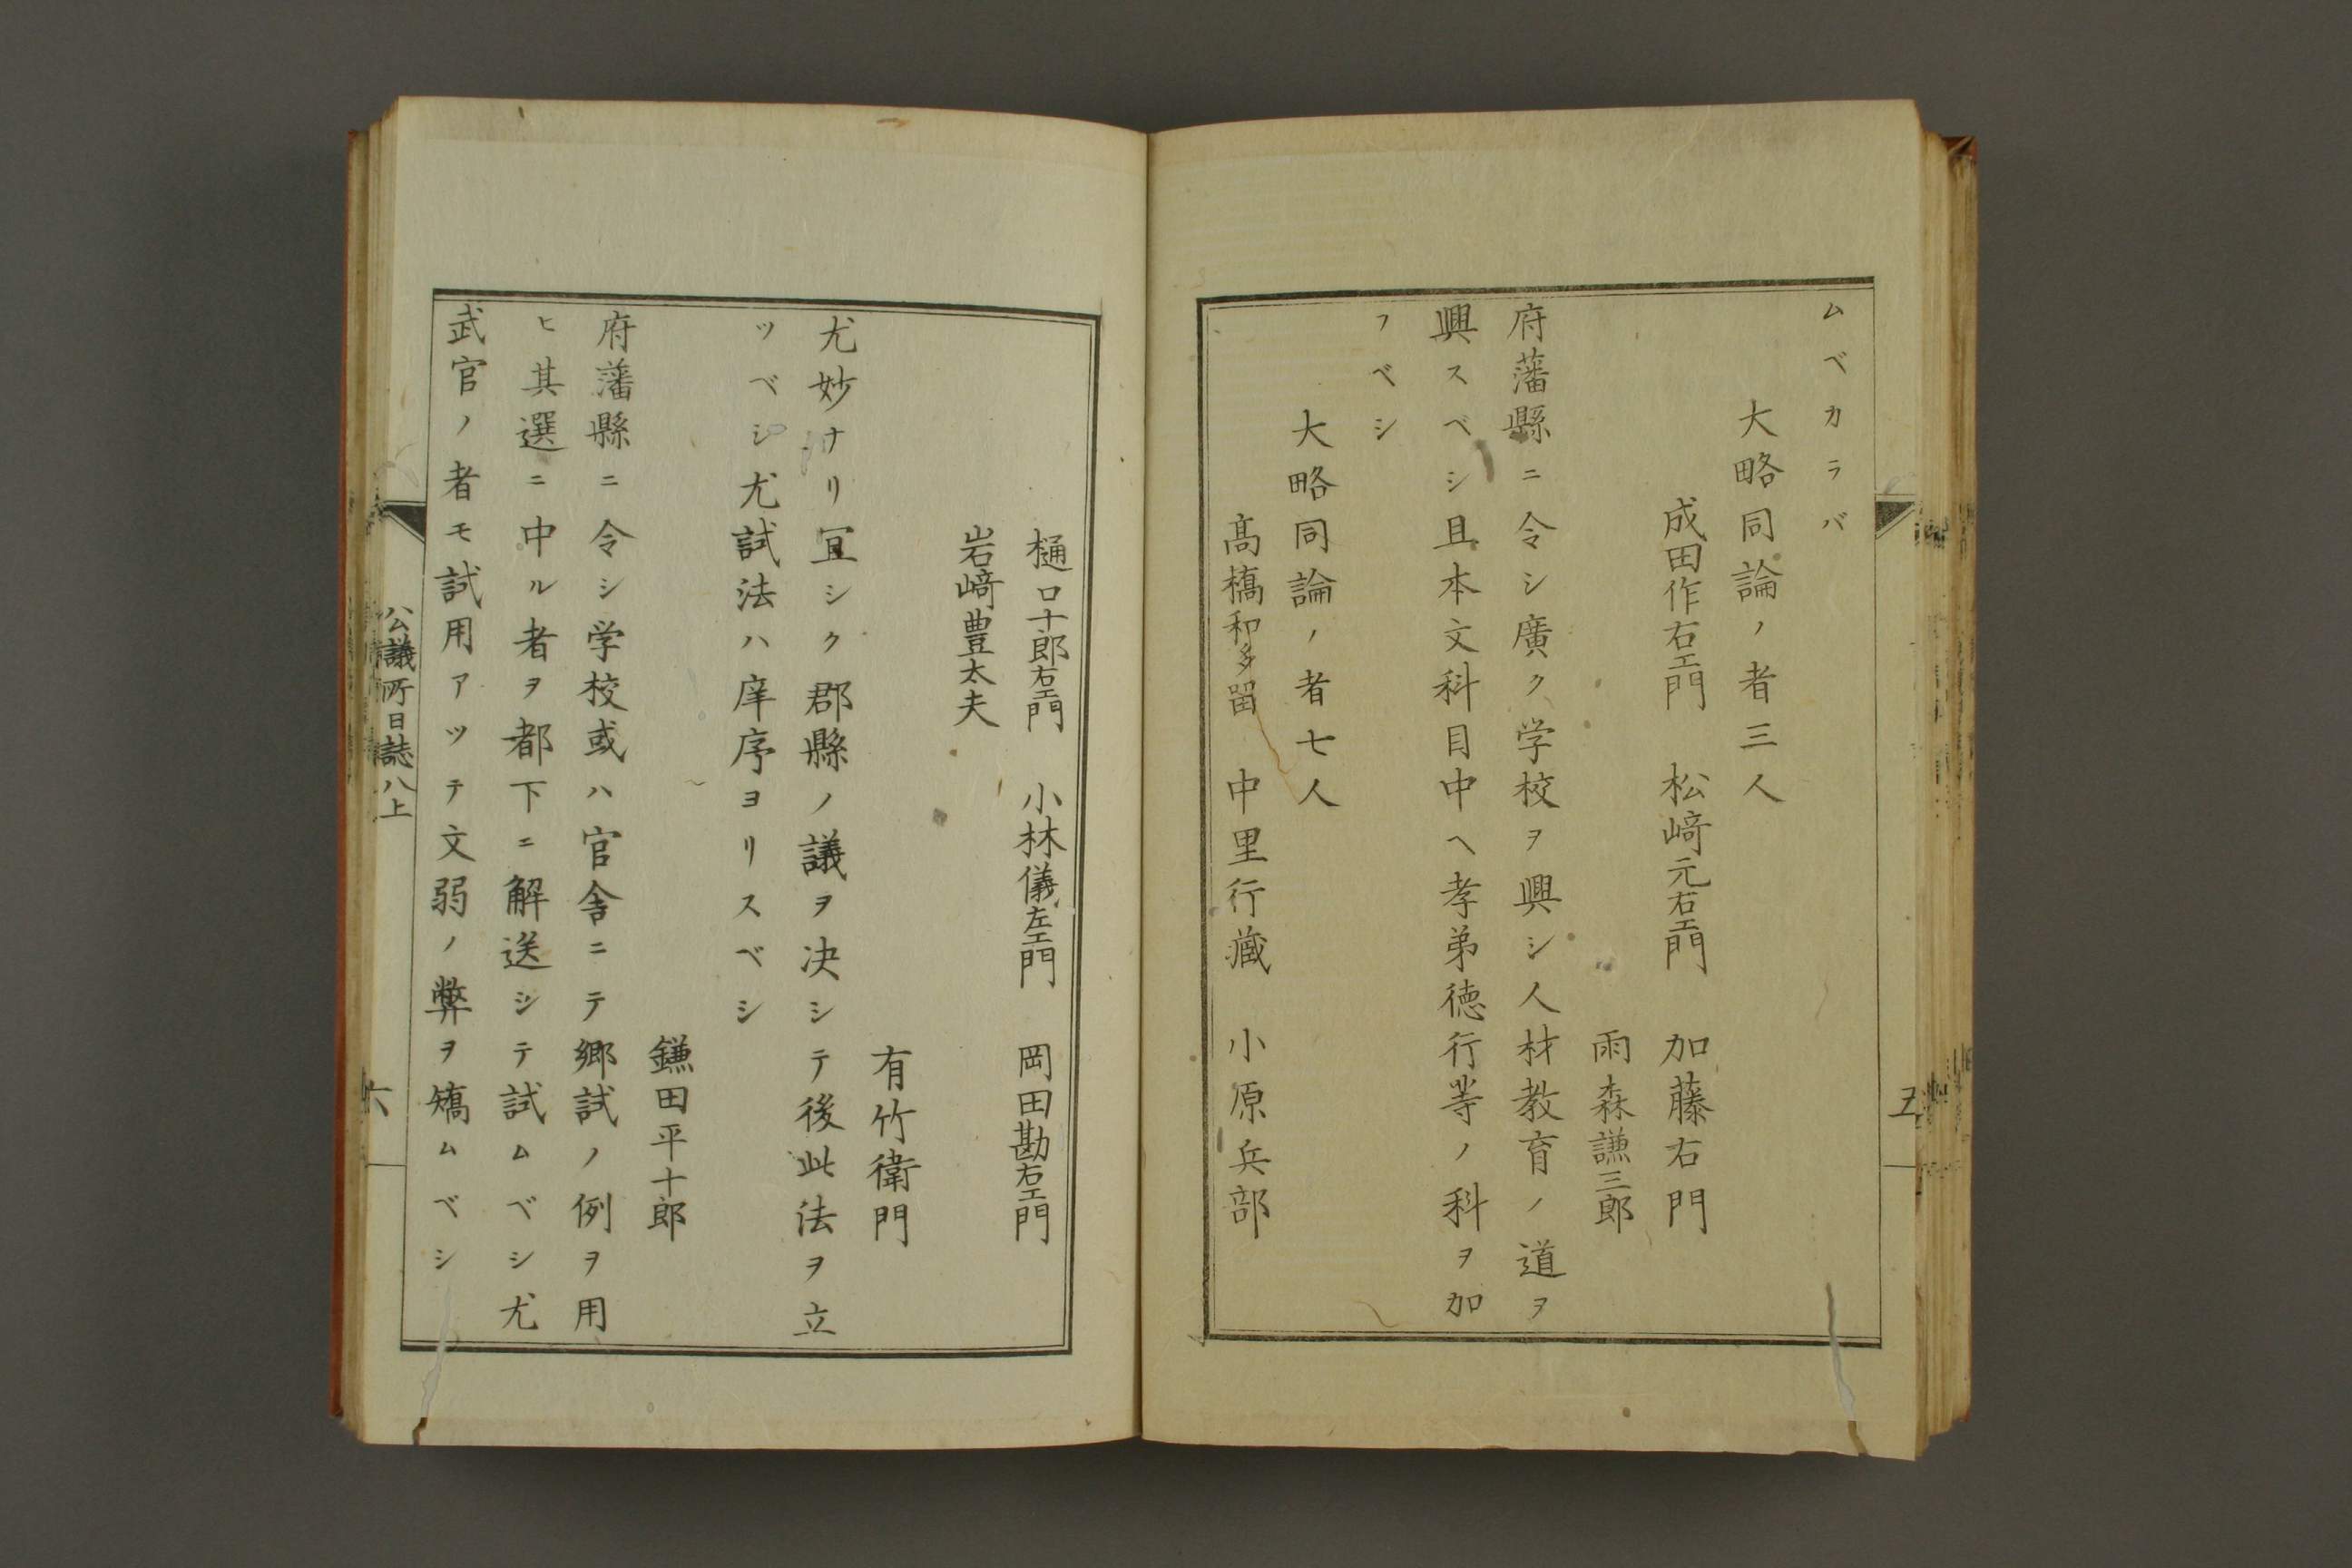 ムベカラバ
大略同論ノ者三人
成田作右エ門　松﨑元右エ門　加藤右門
雨森謙三郎
府藩縣ニ令シ廣ク学校ヲ興シ人材教育ノ道ヲ
興スベシ且本文科目中ヘ孝弟徳行等ノ科ヲ加
フベシ
大略同論ノ者七人
髙橋和多留　中里行藏　小原兵部
五
樋口十郎右エ門　小林儀左エ門　岡田勘右エ門
岩﨑豊太夫
有竹衛門
尤妙ナリ冝シク郡縣ノ議ヲ决シテ後此法ヲ立
ツベシ尤試法ハ庠序ヨリスベシ
鎌田平十郎
府藩縣ニ令シ学校或ハ官舎ニテ郷試ノ例ヲ用
ヒ其選ニ中ル者ヲ都下ニ解送シテ試ムベシ尤
武官ノ者モ試用アツテ文弱ノ弊ヲ矯ムベシ
公議所日誌八上
六